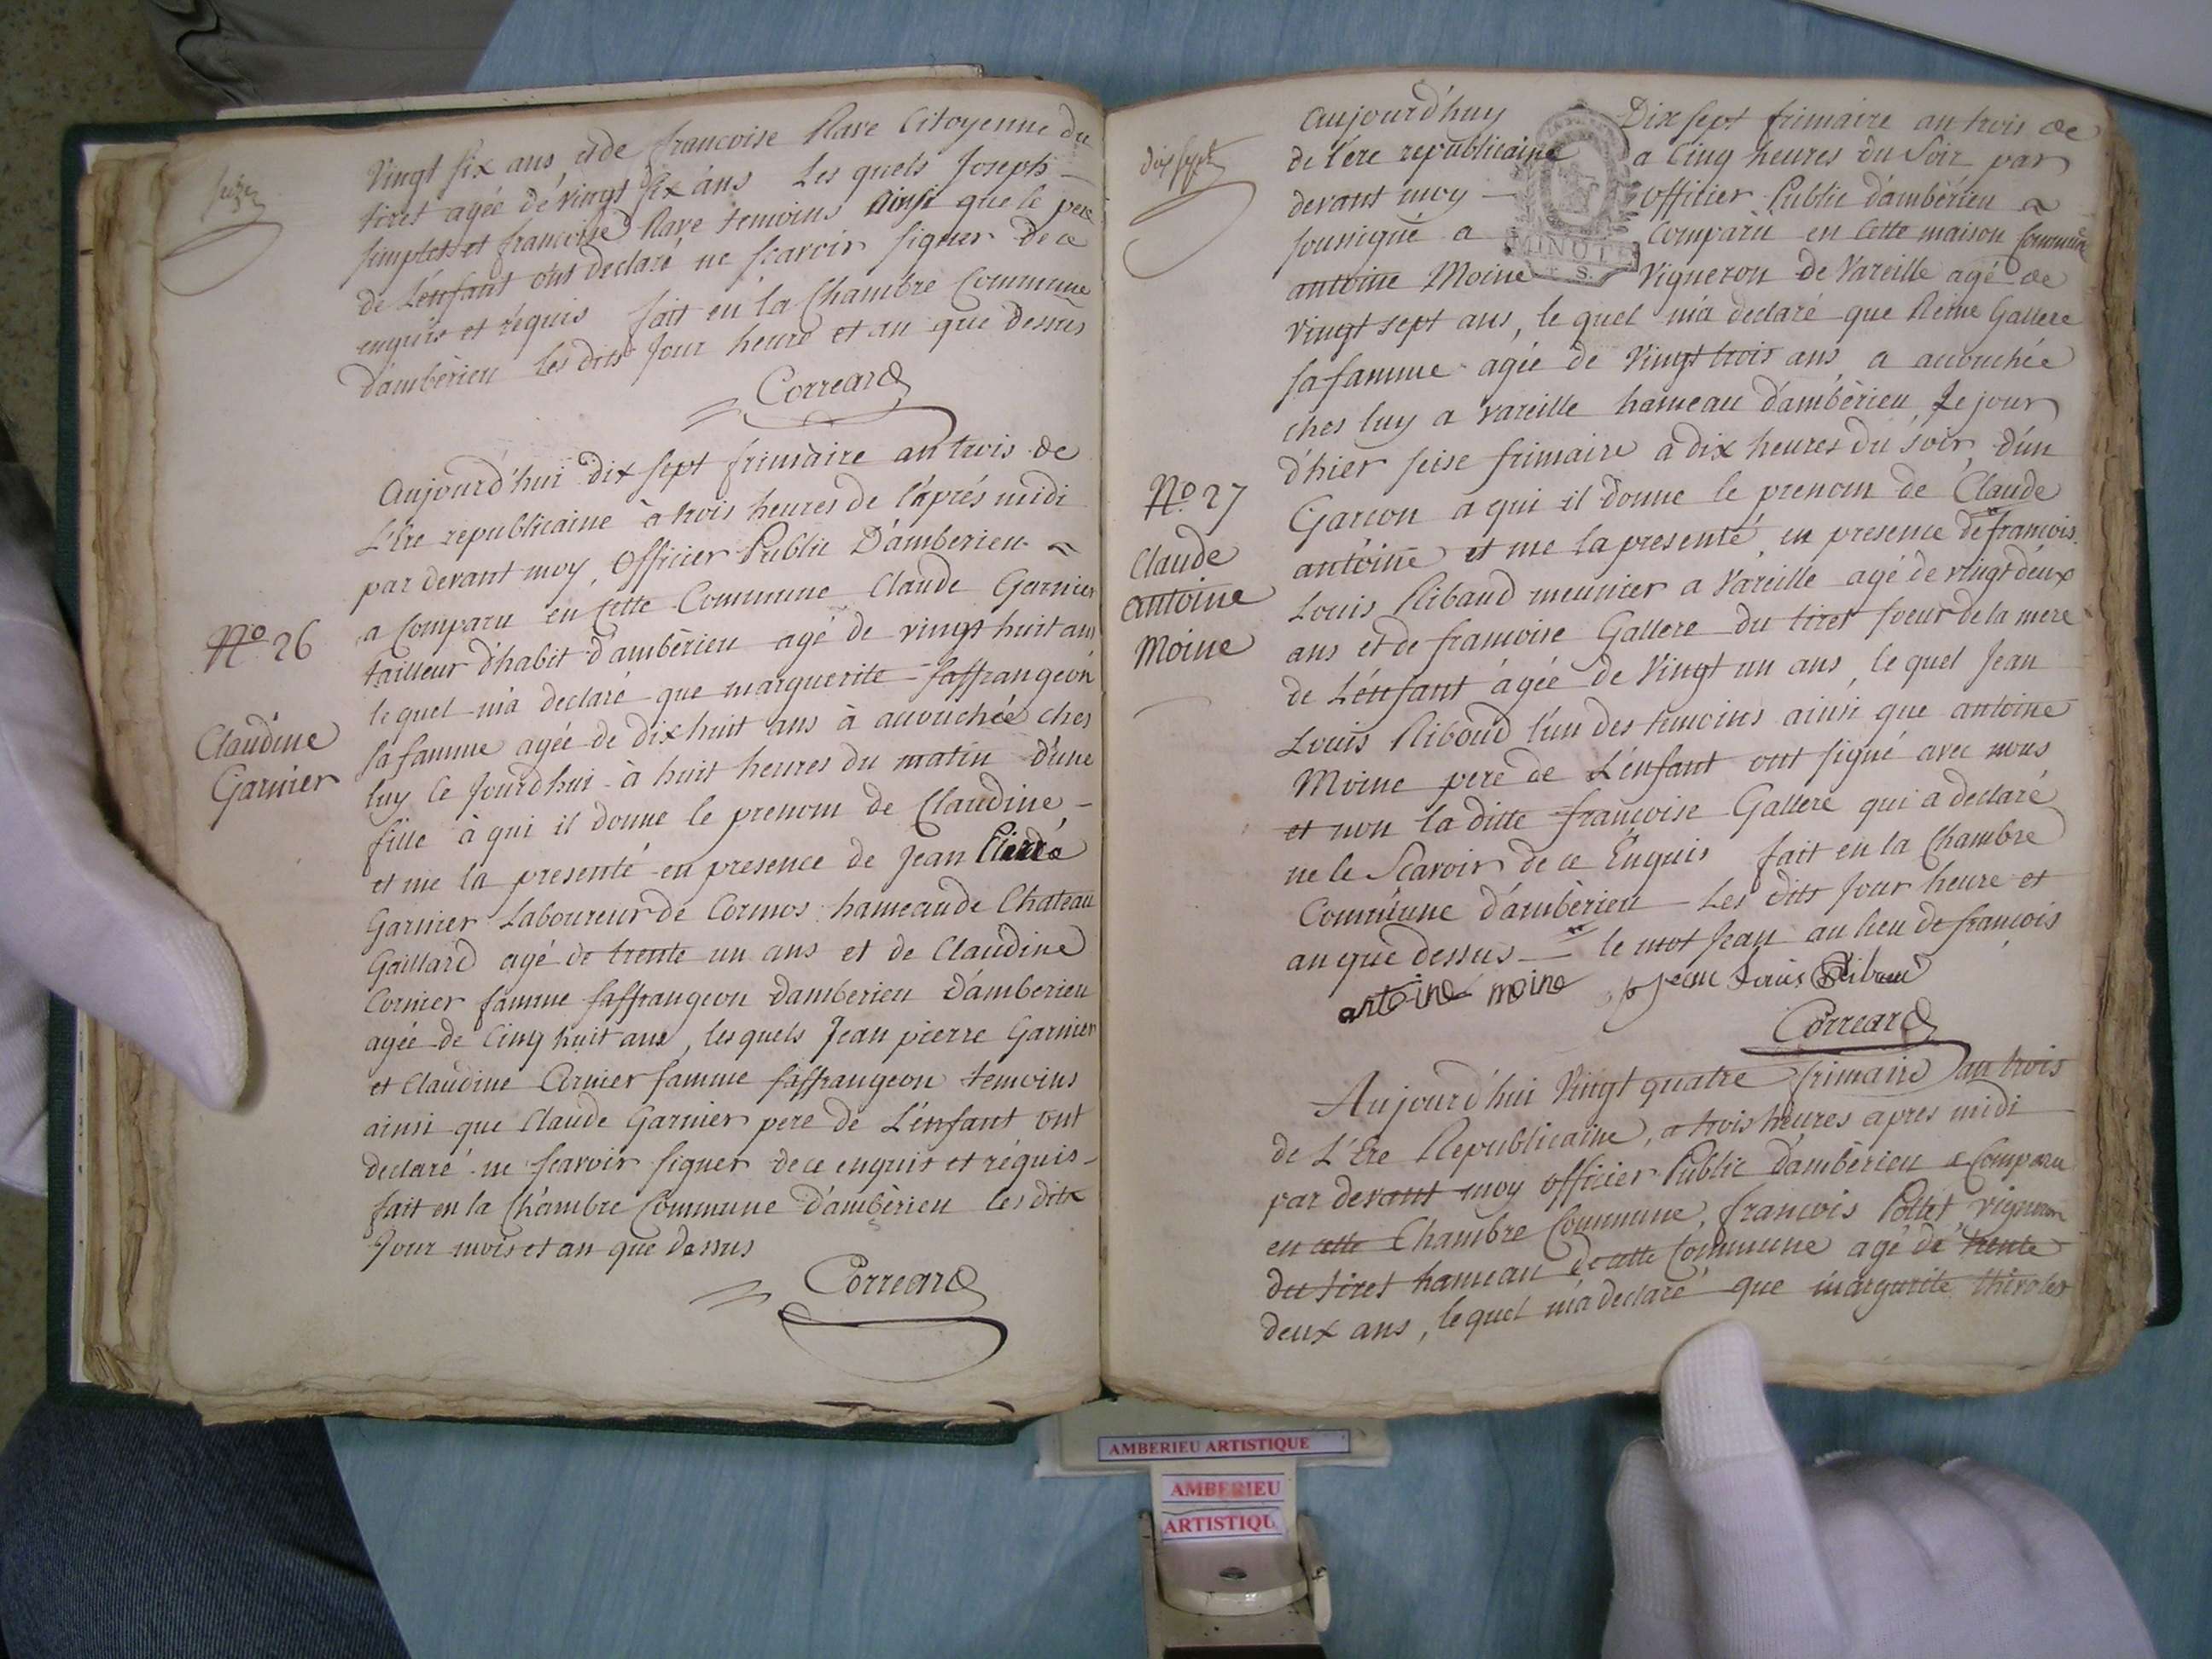 seize
Vingt six ans et de francoise Rave Citoyenne du
tiret agée de vingt six ans Les quels Joseph
simplet et francoise Rave temoins Ainsi que le pere
de L'énfant ont declaré ne scavoir signer de ce
enquis et réquis fait en la Chambre Commune
d'ambèrieu les dits Jour heure et an que dessus
Correard
Aujourd'hui dix sept frimaire an trois de
L'Ere republicaine à trois heures de l'aprés midi
par devant moy, Officier Public D'amberieu
a Comparu en Cette Commune Claude Garnier
tailleur d'habit d'ambèrieu agé de vingt huit ans
le quel m'a declaré que marguerite saffrangeon
sa famme agée de dix huit ans à accouchée ches
luy ce Jourd'hui à huit heures du matin d'une
fille à qui il donne le prenom de Claudine
et me la presenté en presence de Jean Pierre
Garnier Laboureur de Cormos hameau de Chateau
Gaillard agé de trente un ans et de Claudine
Cornier famme saffrangeon d'amberieu d'amberieu
agée de Cinq huit ans, les quels Jean pierre Garnier
et Claudine Cornier famme saffrangeon temoins
ainsi que Claude Garnier pere de L'énfant ont
declaré ne scavoir signer de ce enquis et réquis
fait en la Chambre Commune d'ambèrieu les dits
Jour mois et an que dessus
Correard
No. 26
Claudine
Garnier
dix sept
Aujourd'huy Dix sept frimaire an trois de
de l'ére republicaine a Cinq heures du Soir par
devant moy officier Public d'ambérieu
soussigné a Comparu en Cette maison Commune
MINUTE
antoine Moine Vigneron de Vareille agé de
vingt sept ans, le quel m'a declaré que Reine Gallere
sa famme agée de Vingt trois ans a accouchée
ches luy a vareille hameau d'ambèrieu Le jour
d'hier seise frimaire à dix heures du soir d'un
Garcon a qui il donne le prenom de Claude
antoine et me la presenté en presence de francois
Louis Ribaud meunier a Vareille agé de vingt deux
ans et de francoise Gallere du tiret soeur de la mere
de L'énfant agée de Vingt un ans, le quel Jean
Louis Riboud l'un des temoins ainsi que antoine
Moine pere de L'énfant ont signé avec nous
et non la ditte francoise Gallere qui a declaré
ne le Scavoir de ce Enquis fait en la Chambre
Commune d'ambèrieu Les dits Jour heure et
an que dessus le mot Jean au lieu de francois
antoine moine Jean Louis Riboud
Correard
No. 27
Claude
antoine
Moine
Aujourd'hui Vingt quatre frimaire an trois
de L'Ere Republicaine, a trois heures apres midi
par devant moy officier Public d'ambèrieu a Comparu
en cette Chambre Commune, francois Pollet vigneron
du tiret hameau de cette Commune agé de trente
deux ans, le quel m'a declaré que marguerite
AMBERIEU ARTISTIQUE
AMBERIEU
ARTISTIQU